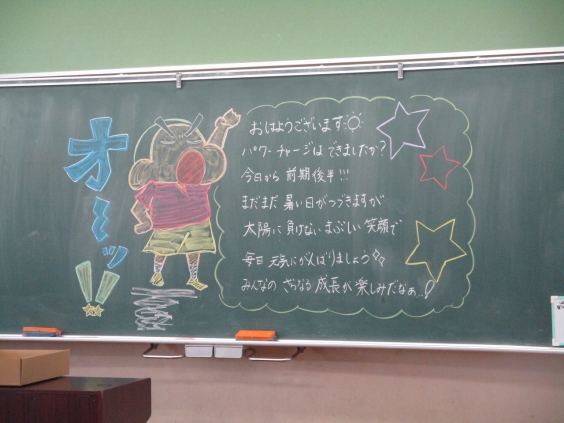 オーッ!!
おはようございます
パワーチャージはできましたか?
今日から前期後半!!!
まだまだ暑い日がつづきますが
太陽に負けないまぶしい笑顔で
毎日元気にがんばりましょう
みんなのさらなる成長が楽しみだなぁ..!